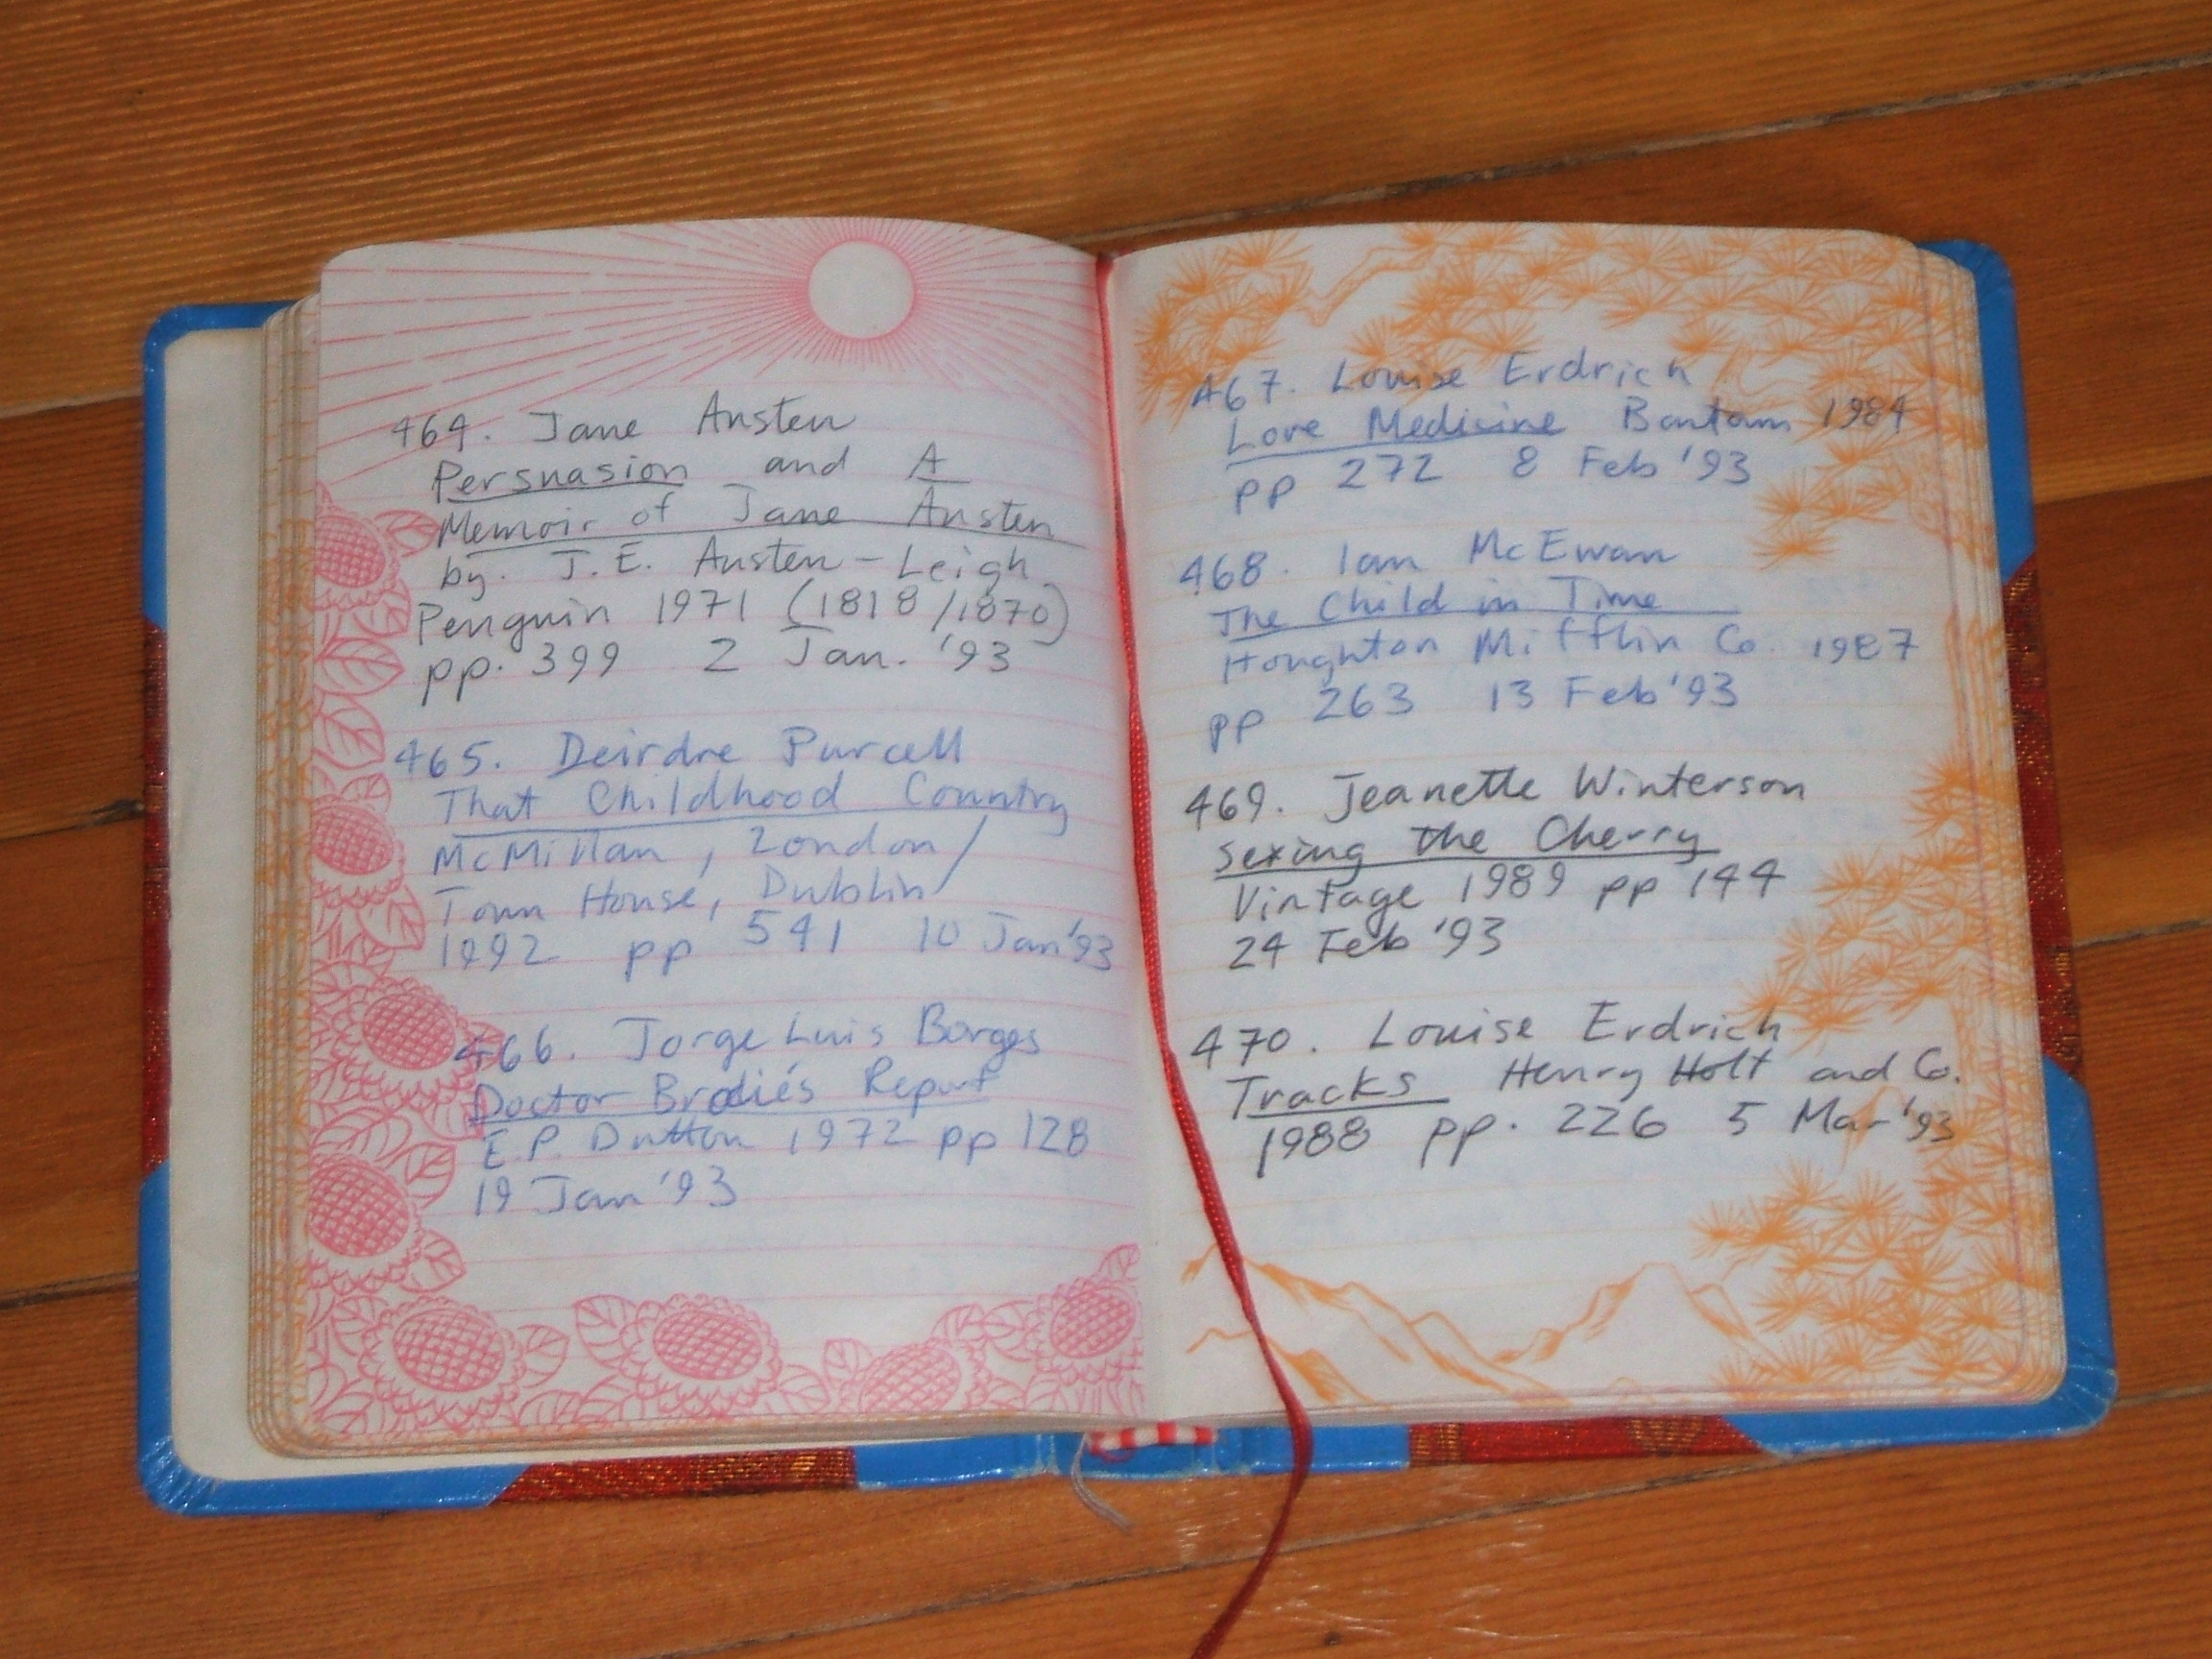 464. Jane Austen
Persuasion and A
Memoir of Jane Austen
by. J.E. Austen-Leigh
Penguin 1971 (1818/1870)
pp. 399 2 Jan. '93
465. Deirdre Purcell
That Childhood Country
McMillan, London/
Town House, Dublin/
1992 pp 541 10 Jan '93
466. Jorge Luis Borges
Doctor Brodie's Report
E.P. Dutton 1972 pp 128
19 Jan '93
467. Louise Erdrich
Love Medicine Bantam 1984
pp 272 8 Feb '93
468. Ian McEwan
The Child in Time
Houghton Mifflin Co. 1987
pp 263 13 Feb '93
469. Jeanette Winterson
Sexing the Cherry
Vintage 1989 pp 144
24 Feb '93
470. Louise Erdrich
Tracks Henry Holt and Co.
1988 pp. 226 5 Mar '93